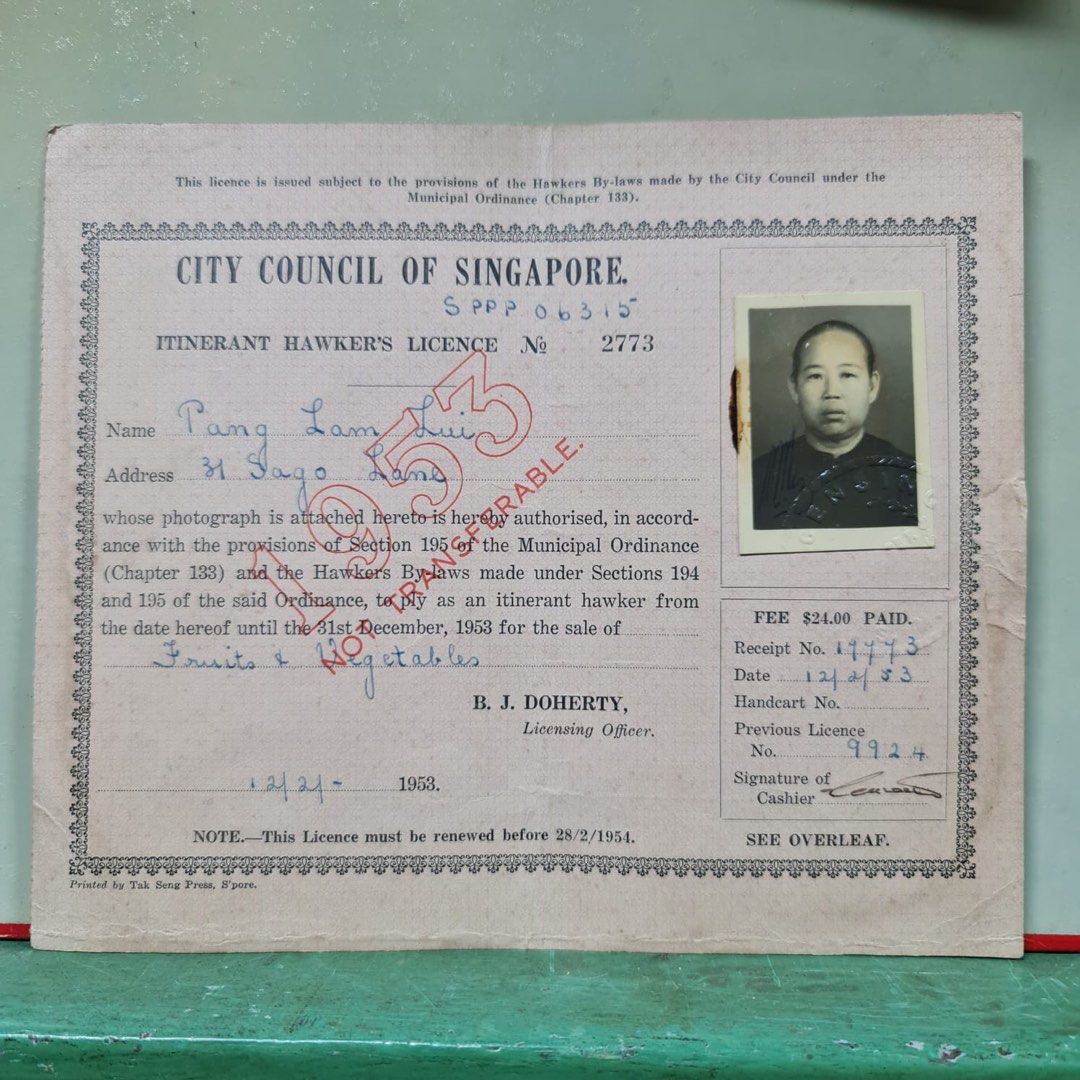 This licence is issued subject to the provisions of the Hawkers By-laws made by the City Council under the
Municipal Ordinance (Chapter 133).
CITY COUNCIL OF SINGAPORE.
SPPP 06315
ITINERANT HAWKER'S LICENCE № 2773
Name Pang Lam Lui
Address 31 Sago Lane
whose photograph is attached hereto is hereby authorised, in accord-
ance with the provisions of Section 195 of the Municipal Ordinance
(Chapter 133) and the Hawkers By-laws made under Sections 194
and 195 of the said Ordinance, to ply as an itinerant hawker from
the date hereof until the 31st December, 1953 for the sale of
Fruits & Vegetables
1953
NOT TRANSFERABLE.
B. J. DOHERTY,
Licensing Officer.
12/2/- 1953.
NOTE.—This Licence must be renewed before 28/2/1954.
FEE $24.00 PAID.
Receipt No. 19773
Date 12/2/53
Handcart No.
Previous Licence
No. 9924
Signature of
Cashier
SEE OVERLEAF.
Printed by Tak Seng Press, S'pore.